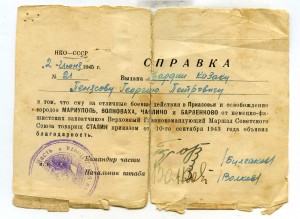 НКО—СССР
2 июня 1945 г.
№ 21
СПРАВКА
Выдана Гвардии Козаку
Георгию Петровичу
в том, что ему за отличные боевые действия в Приазовье и освобождение
городов МАРИУПОЛЬ, ВОЛНОВАХА, ЧАПЛИНО и БАРВЕНКОВО от немецко-фа-
шистских захватчиков Верховный Главнокомандующий Маршал Советского
Союза товарищ СТАЛИН приказом от 10-го сентября 1943 года объявил
благодарность.
Командир части
Начальник штаба
(Булгаков)
(Волков)